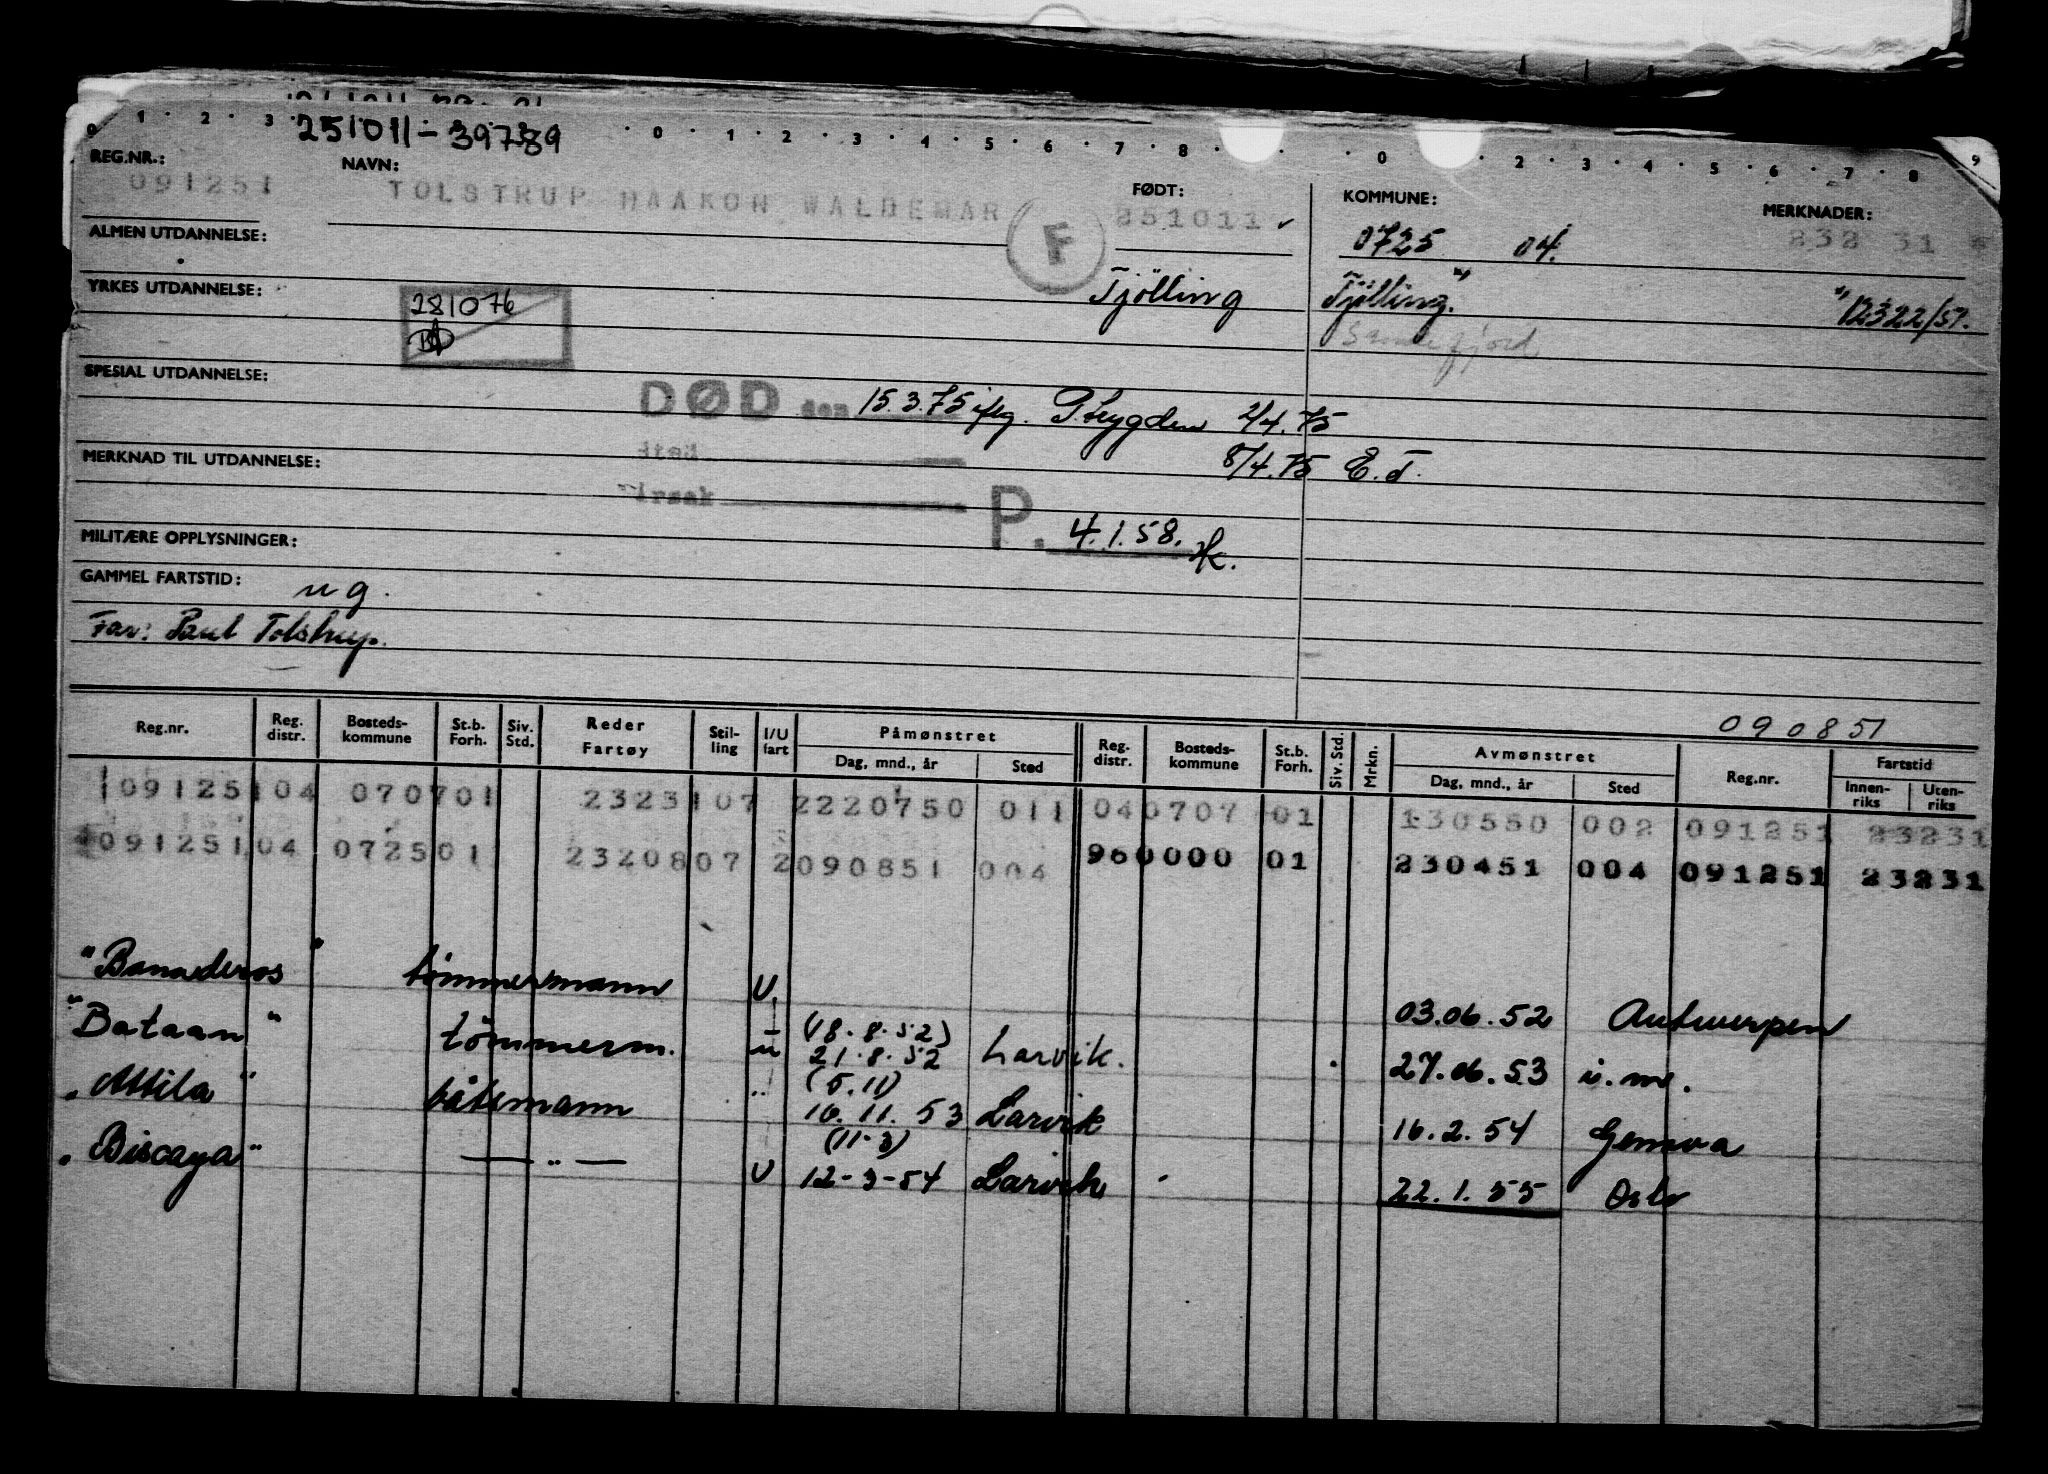 251011-39789
0 1 2 3 0 1 2 3 4 5 6 7 8 0 2 3 4 5 6 7 8 9
REG.NR.: NAVN: FØDT: KOMMUNE: MERKNADER:
091251 TOLSTRUP HAAKON WALDEMAR F 251011 0725 04. 232 31
ALMEN UTDANNELSE:
Tjölling Tjölling. "12322/51.
YRKES UTDANNELSE:
281076
Sandefjord
SPESIAL UTDANNELSE:
DØD den 15.3.75 iflg. P.trygden 2/4.75
sted 8/4.75 E.T.
MERKNAD TIL UTDANNELSE:
årsak
P. 4.1.58. Hk.
MILITÆRE OPPLYSNINGER:
GAMMEL FARTSTID: ug.
Far: Paul Tolstrup.
090851
Reg.nr. Reg. distr. Bosteds-kommune St.b. Forh. Siv. Std. Reder Fartøy Stil-ling I/U fart Påmønstret Dag, mnd., år Sted Reg. distr. Bosteds-kommune St.b. Forh. Siv. Std. Mrkn. Avmønstret Dag, mnd., år Sted Reg.nr. Fartstid Innen-riks Uten-riks
1091251 04 0707 01 23231 07 2 220750 011 04 0707 01 130550 002 091251 23231
091251 04 0725 01 23208 07 2 090851 004 96 0000 01 230451 004 091251 23231
"Banaderos" tømmermann U. 03.06.52 Antwerpen
"Bataan" tömmerm. u (18.8.52) 21.8.52 Larvik. 27.06.53 u.me.
"Attila" båtsmann " (5.11) 10.11.53 Larvik 16.2.54 Genova
"Biscaya" — " — U (11.3) 12-3-54 Larvik 22.1.55 Oslo